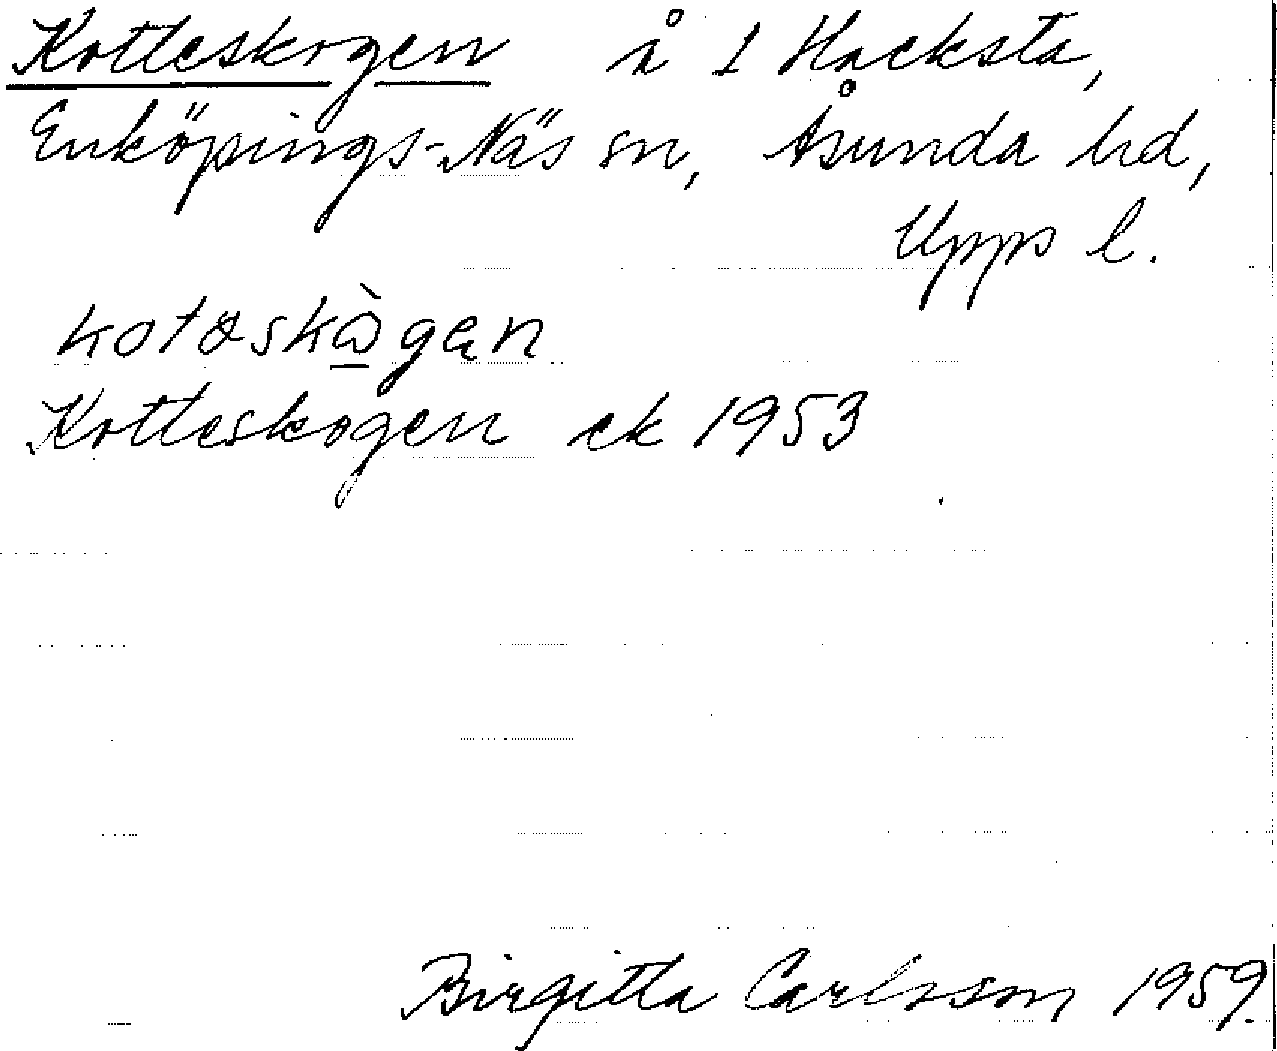 Kotteskogen å 1 Hacksta,
Enköpings-Näs sn, Åsunda hd,
Upps l.
Kotteskogen ek 1953
Birgitta Carlsson 1959.